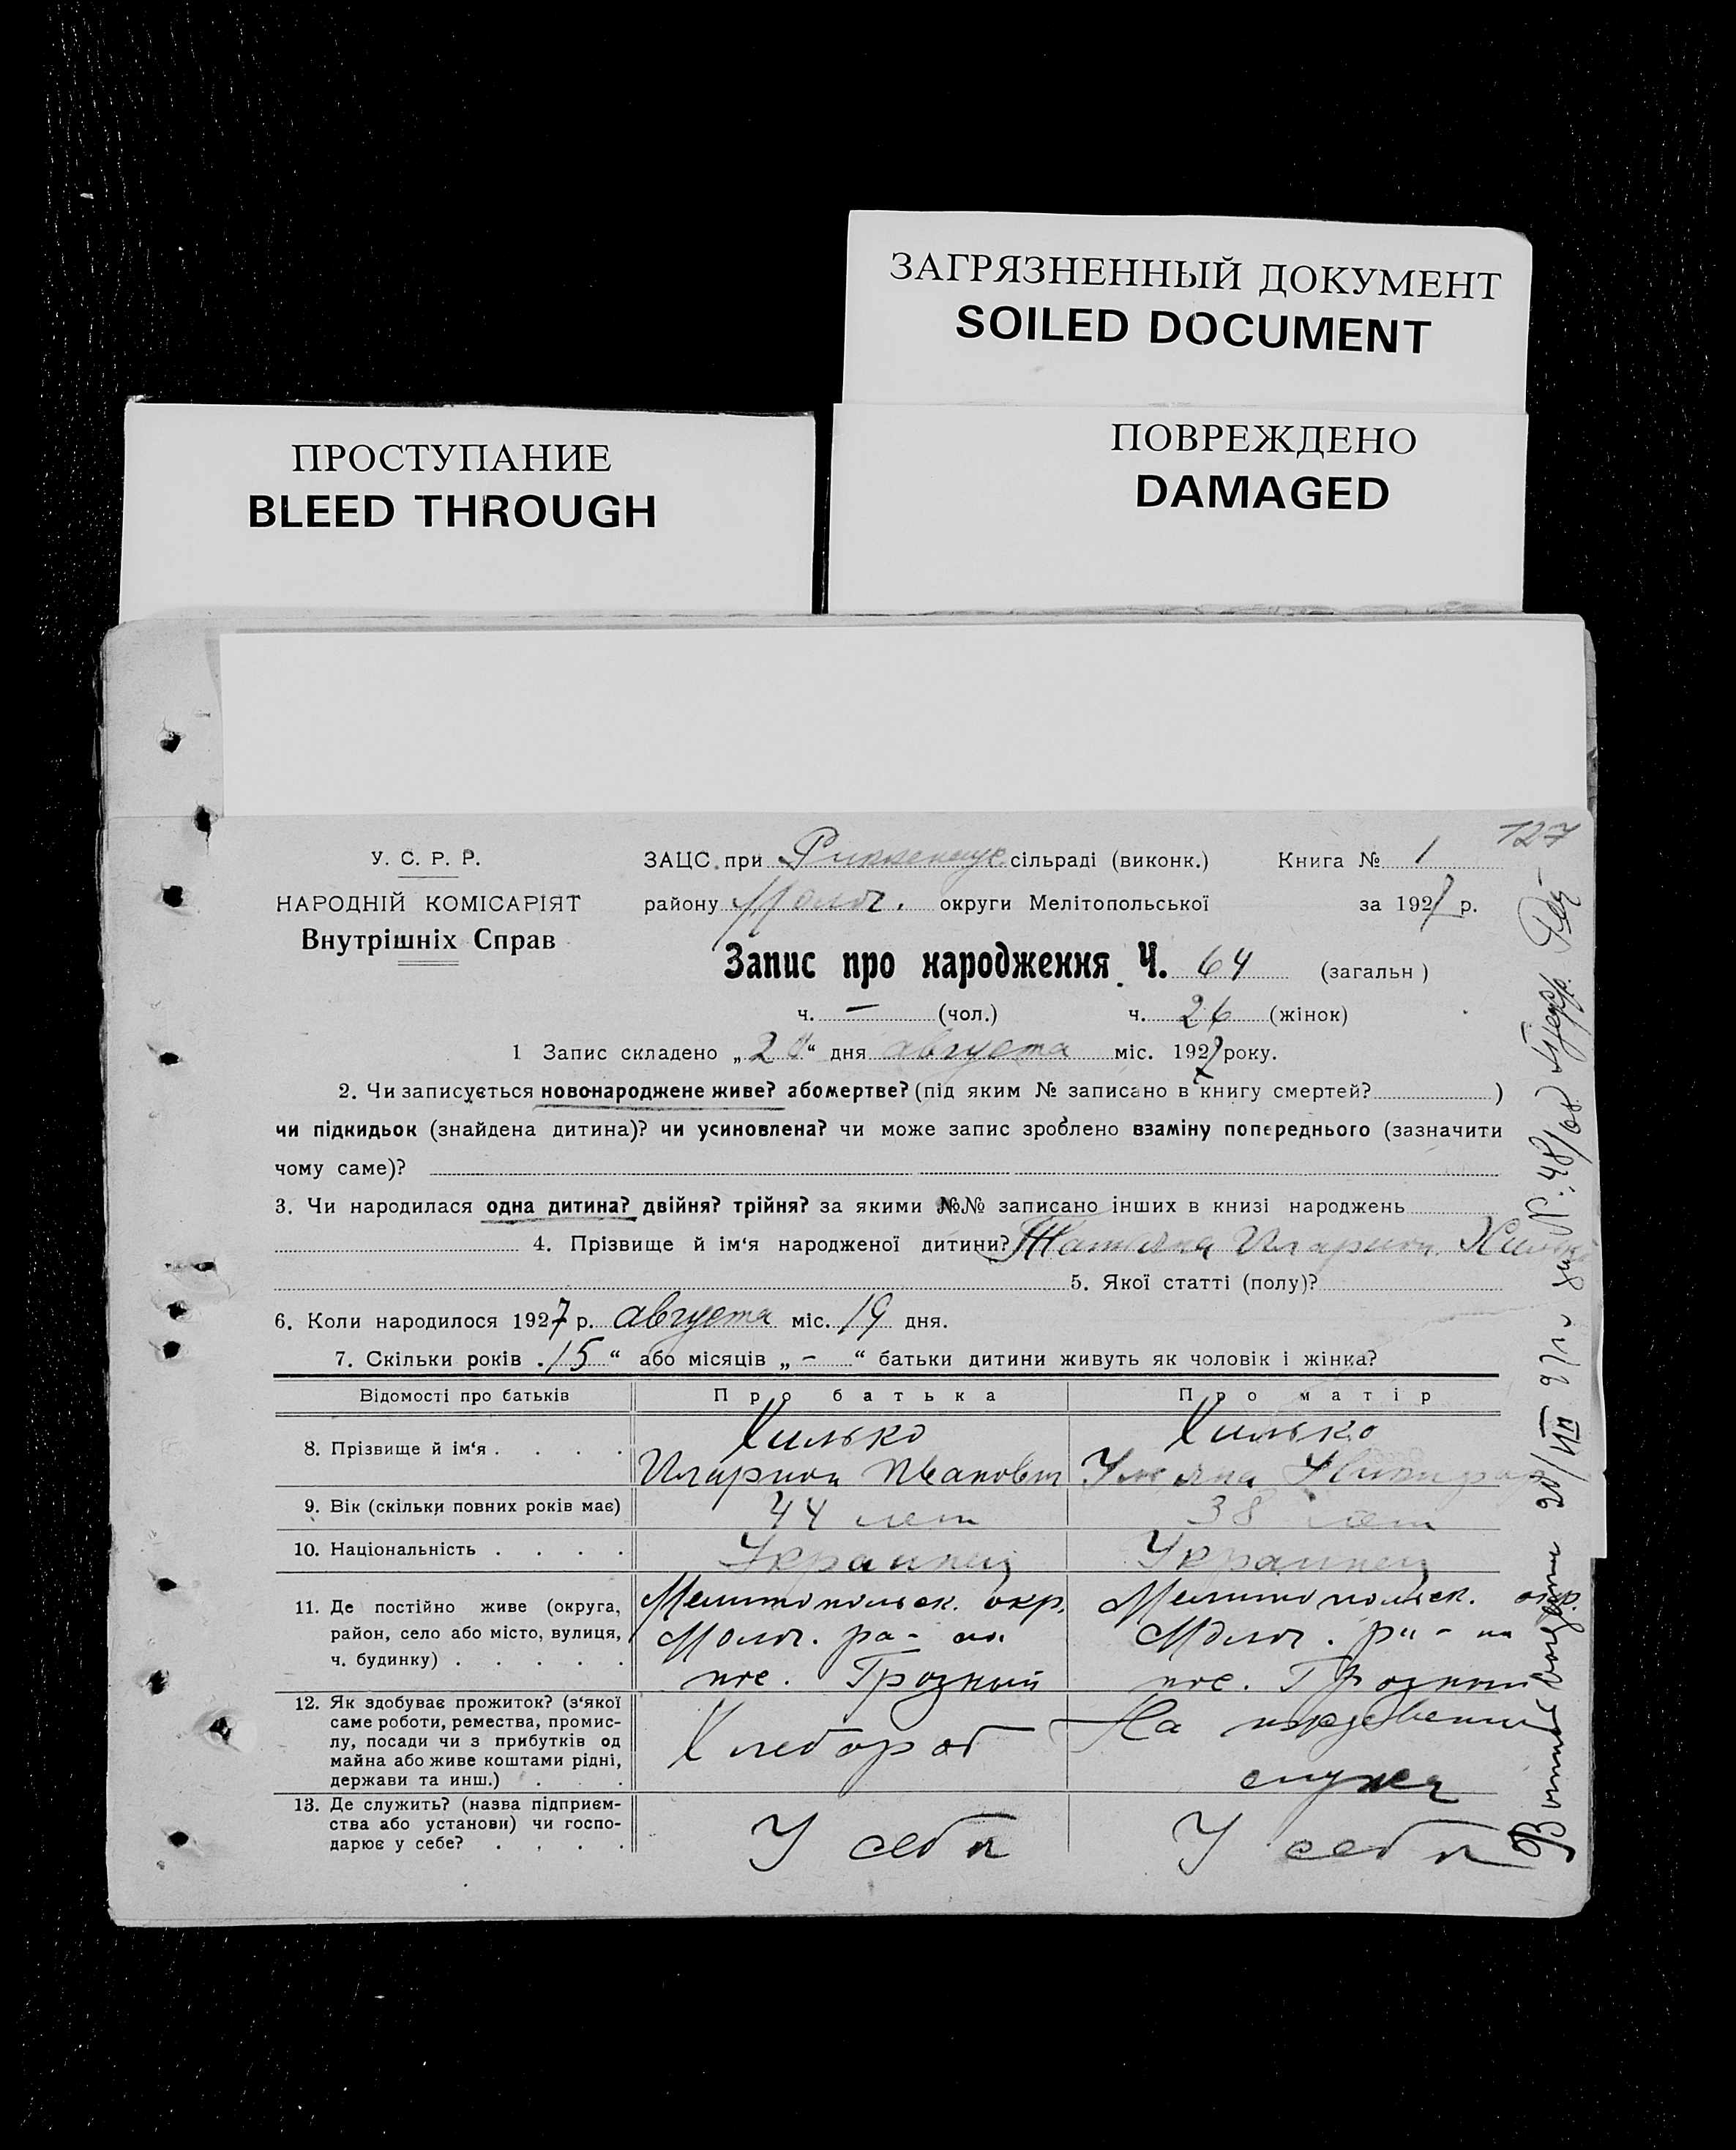 ЗАГРЯЗНЕННЫЙ ДОКУМЕНТ
SOILED DOCUMENT
ПРОСТУПАНИЕ
BLEED THROUGH
ПОВРЕЖДЕНО
DAMAGED
127
У. С. Р. Р.
НАРОДНІЙ КОМІСАРІЯТ
Внутрішніх Справ
ЗАЦС при сільраді (виконк.) Книга № 1
району Молоч. округи Мелітопольської за 1927 р.
Запис про народження Ч. 64 (загальн)
ч. – (чол.) ч. 26 (жінок)
1 Запис складено „20“ дня августа міс. 1927 року.
2. Чи записується новонароджене живе? або мертве? (під яким № записано в книгу смертей? )
чи підкидьок (знайдена дитина)? чи усиновлена? чи може запис зроблено взаміну попереднього (зазначити
чому саме)?
3. Чи народилася одна дитина? двійня? трійня? за якими №№ записано інших в книзі народжень
4. Прізвище й ім‘я народженої дитини? Татьяна Иларион. Хилько
5. Якої статті (полу)?
6. Коли народилося 1927 р. августа міс. 19 дня.
7. Скільки років „15“ або місяців „–“ батьки дитини живуть як чоловік і жінка?
Відомості про батьків Про батька Про матір
8. Прізвище й ім‘я . . . . Хилько Хилько
Иларион Иванович Ульяна
9. Вік (скільки повних років має) 44 лет 38 лет
10. Національність . . . . Украинец Украинец
11. Де постійно живе (округа, Мелитопольск. окр. Мелитопольск. окр.
район, село або місто, вулиця, Молоч. ра-на Молоч. ра-на
ч. будинку) . . . . . пос. Грозный пос. Грозный
12. Як здобуває прожиток? (з‘якої
саме роботи, ремества, промис-
лу, посади чи з прибутків од
майна або живе коштами рідні,
держави та инш.) . . Хлебороб На иждевении
мужа
13. Де служить? (назва підприєм-
ства або установи) чи госпо-
дарює у себе? . . . . У себя У себя